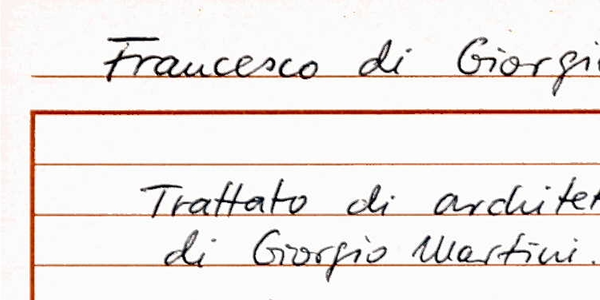 Francesco di Giorgi
Trattato di architet
di Giorgio Martini.